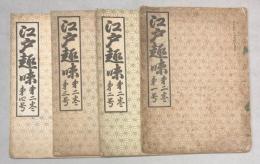 江戸趣味
第二巻
第四号
江戸趣味
第二巻
第三号
江戸趣味
第二巻
第二号
江戸趣味
第二巻
第一号